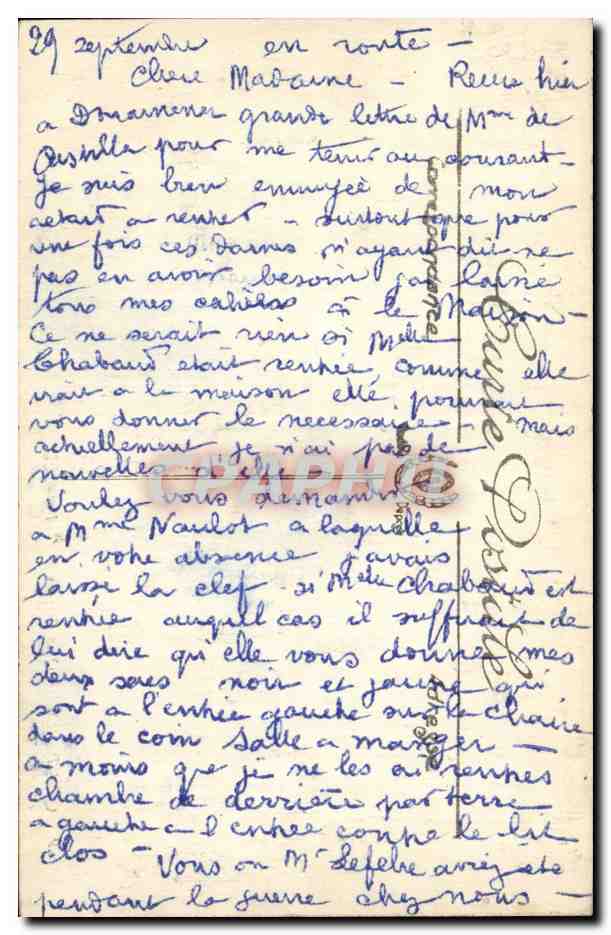 29 septembre en route -
Chere Madame - Recu hier
a Douarnenez grande lettre de Mme de
pour me tenir au courant -
je suis bien ennuyée de mon
retard a rentrer - surtout que pour
une fois ces dames n'ayant dit ne
pas en avoir besoin j'ai laissé
tous mes cahiers à la Maison -
Ce ne serait rien si Melle
Chabaud etait rentrée, comme elle
irait a la maison elle pourrait
vous donner le necessaire - mais
actuellement je n'ai pas de
nouvelles d'elle
Voulez vous demander
a Mme Naulot a laquelle
en votre absence j'avais
laissé la clef si Melle Chabaud est
rentrée auquel cas il suffirait de
lui dire qu'elle vous donne mes
deux sacs noir et jaune qui
sont a l'entrée gauche sur la chaise
dans le coin salle a manger -
a moins que je ne les ai rentrés
chambre de derriere par terre
a gauche a l'entrée contre le lit
clos - Vous ou Mr Lefebre aviez été
pendant la guerre chez nous -
Carte Postale
Correspondance
Adresse
CPAPHIL